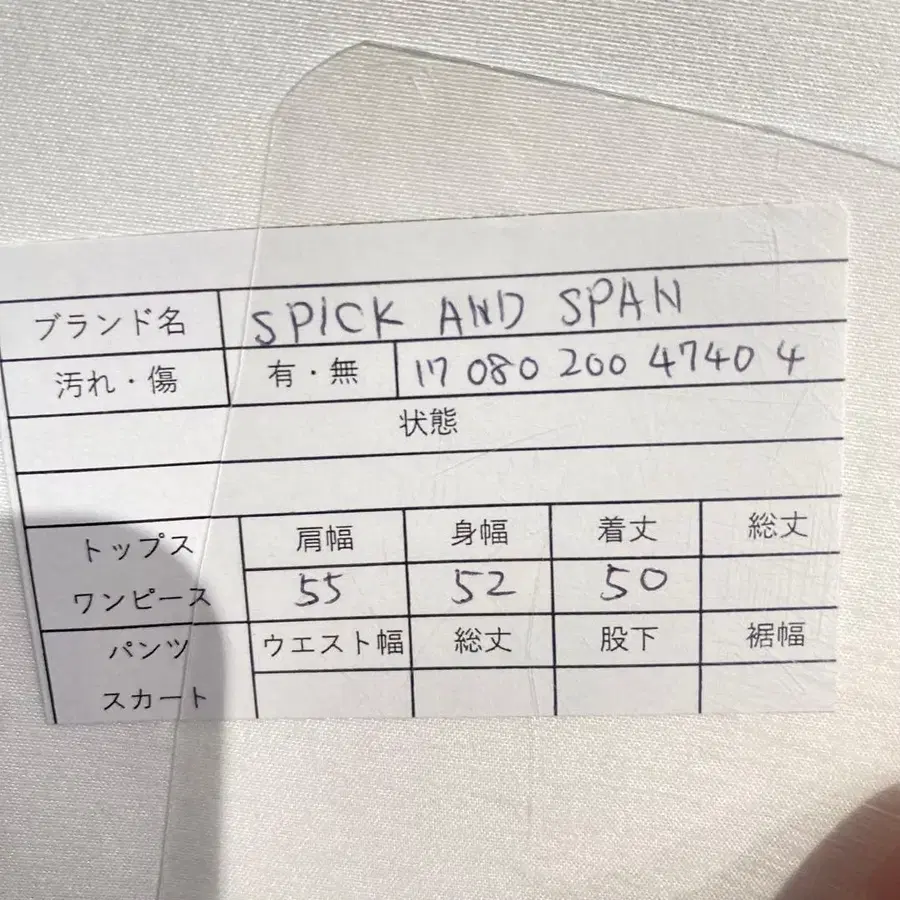 ブランド名 SPICK AND SPAN
汚れ・傷 有・無 17 080 200 47404
状態
トップス 肩幅 身幅 着丈 総丈
ワンピース 55 52 50
パンツ ウエスト幅 総丈 股下 裾幅
スカート